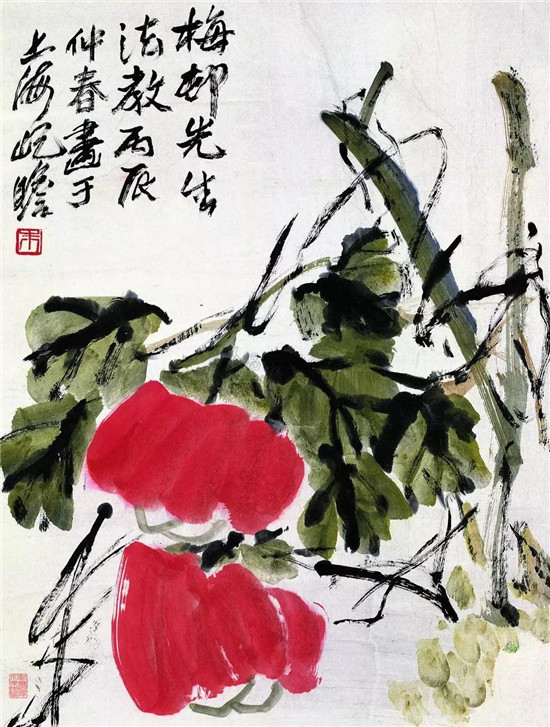 梅邨先生
法教丙辰
仲春畫于
上海屺瞻